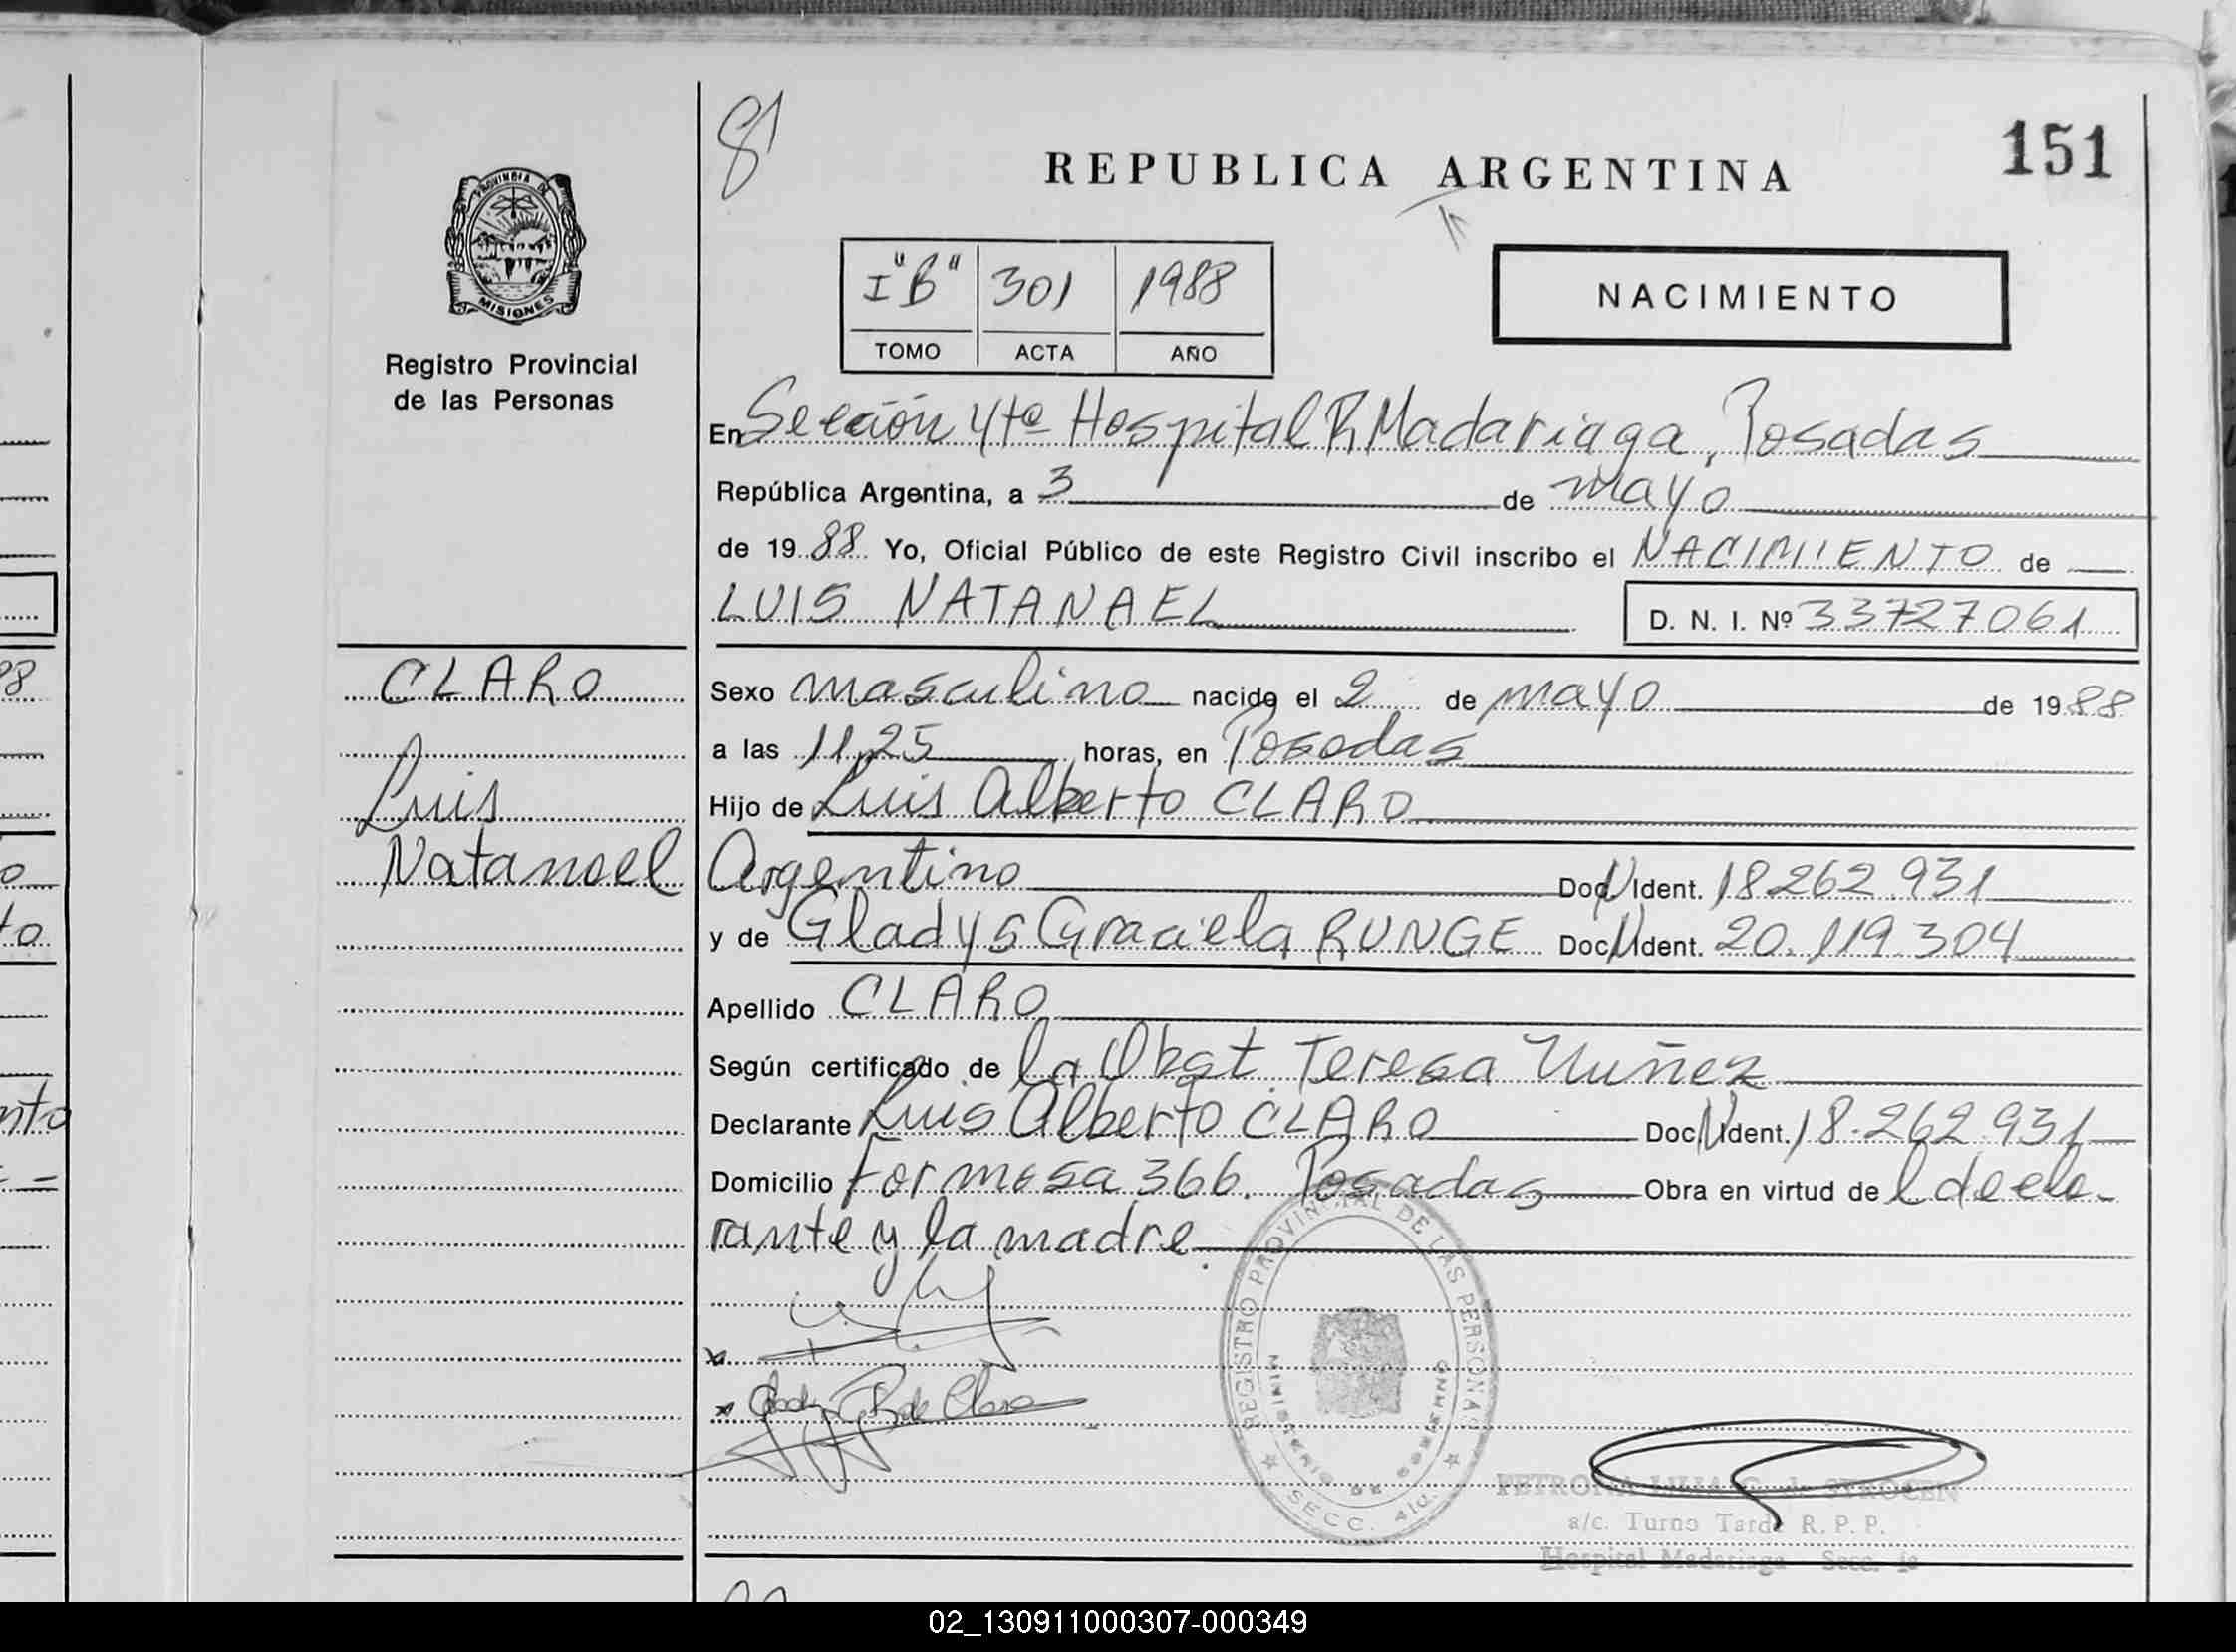 81
151
REPUBLICA ARGENTINA
PROVINCIA DE
MISIONES
Registro Provincial
de las Personas
I "B" 301 1988
TOMO ACTA AÑO
NACIMIENTO
En Sección 4ta Hospital R Madariaga, Posadas
República Argentina, a 3 de mayo
de 19 88 Yo, Oficial Público de este Registro Civil inscribo el NACIMIENTO de
LUIS NATANAEL
D. N. I. Nº 33727061
CLARO
Luis
Natanael
Sexo masculino nacido el 2 de mayo de 19 88
a las 11,25 horas, en Posadas
Hijo de Luis Alberto CLARO
Argentino Doc N Ident. 18262.931
y de Gladys Graciela RUNGE Doc N Ident. 20.119.304
Apellido CLARO
Según certificado de la Obst. Teresa Nuñez
Declarante Luis Alberto CLARO Doc N Ident. 18.262.931
Domicilio Formosa 366. Posadas Obra en virtud de l decla-
rante y la madre.
x
x Gladys R de Claro
REGISTRO PROVINCIAL DE LAS PERSONAS
MINISTERIO DE GOBIERNO
SECC. 4ta.
PETRONA G. de STROCEN
a/c. Turno Tarde R. P. P.
Hospital Madariaga Secc.
02_130911000307-000349